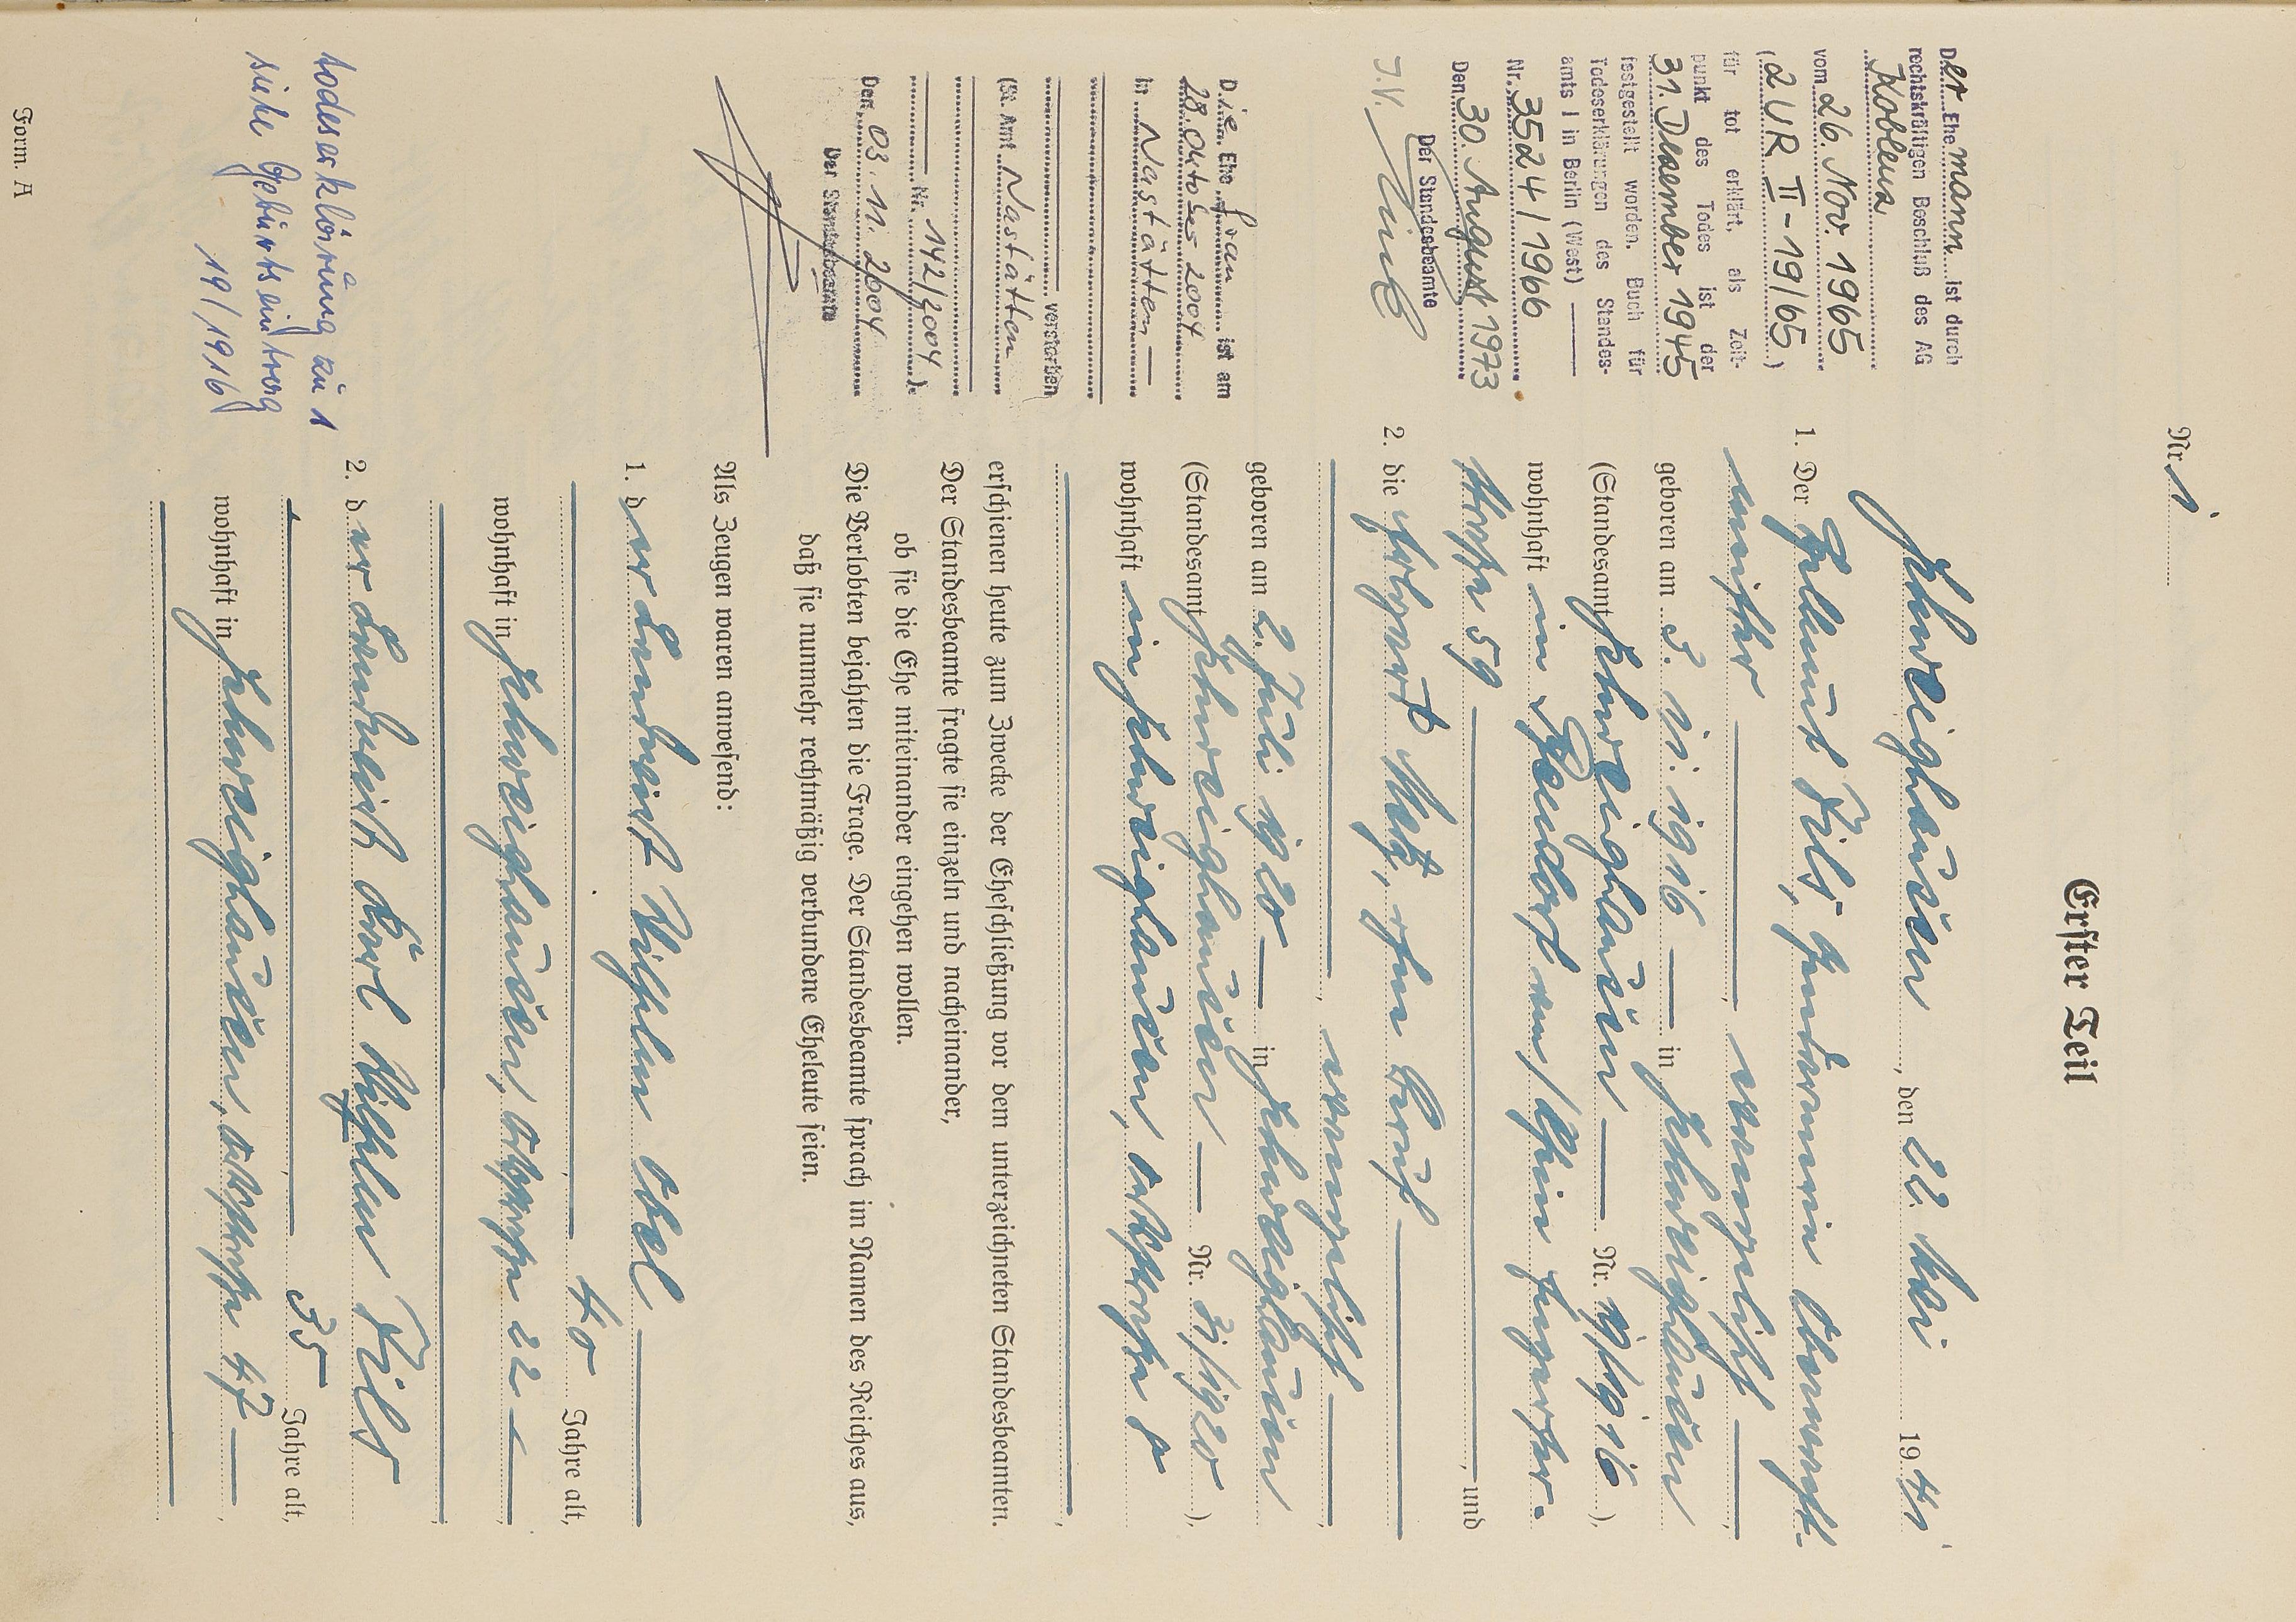 Erster Teil
Nr. 1
Schweighausen, den 22. Mai 1941
1. Der Hellmut Pils, Gendarmerie Oberwacht-
meister, evangelisch
geboren am 3. 11. 1916 in Schweighausen
(Standesamt Schweighausen Nr. 19/1916),
wohnhaft in Bendorf am Rhein
59, und
2. die Metz, ohne Beruf
, evangelisch,
geboren am 2. Juli 1920 in Schweighausen
(Standesamt Schweighausen Nr. 31/1920),
wohnhaft in Schweighausen,
erschienen heute zum Zwecke der Eheschließung vor dem unterzeichneten Standesbeamten.
Der Standesbeamte fragte sie einzeln und nacheinander,
ob sie die Ehe miteinander eingehen wollen.
Die Verlobten bejahten die Frage. Der Standesbeamte sprach im Namen des Reiches aus,
daß sie nunmehr rechtmäßig verbundene Eheleute seien.
Als Zeugen waren anwesend:
1. der Landwirt Wilhelm
40 Jahre alt,
wohnhaft in Schweighausen, 22
2. der Landwirt Karl Wilhelm Pils
35 Jahre alt,
wohnhaft in Schweighausen, 47
Der Ehemann ist durch
rechtskräftigen Beschluß des AG
Koblenz
vom 26. Nov. 1965
(2 UR II-19/65)
für tot erklärt, als Zeit-
punkt des Todes ist der
31. Dezember 1945
festgestellt worden. Buch für
Todeserklärungen des Standes-
amts I in Berlin (West)
Nr. 3524/1966
Den 30. August 1973
Der Standesbeamte
J.V.
Die Ehefrau ist am
28. Oktober 2004
in Nastätten
verstorben
(St. Amt Nastätten
Nr. 142/2004).
Den 03. 11. 2004
Der Standesbeamte
Todeserklärung zu 1
siehe Geburtseintrag
19/1916
Form. A